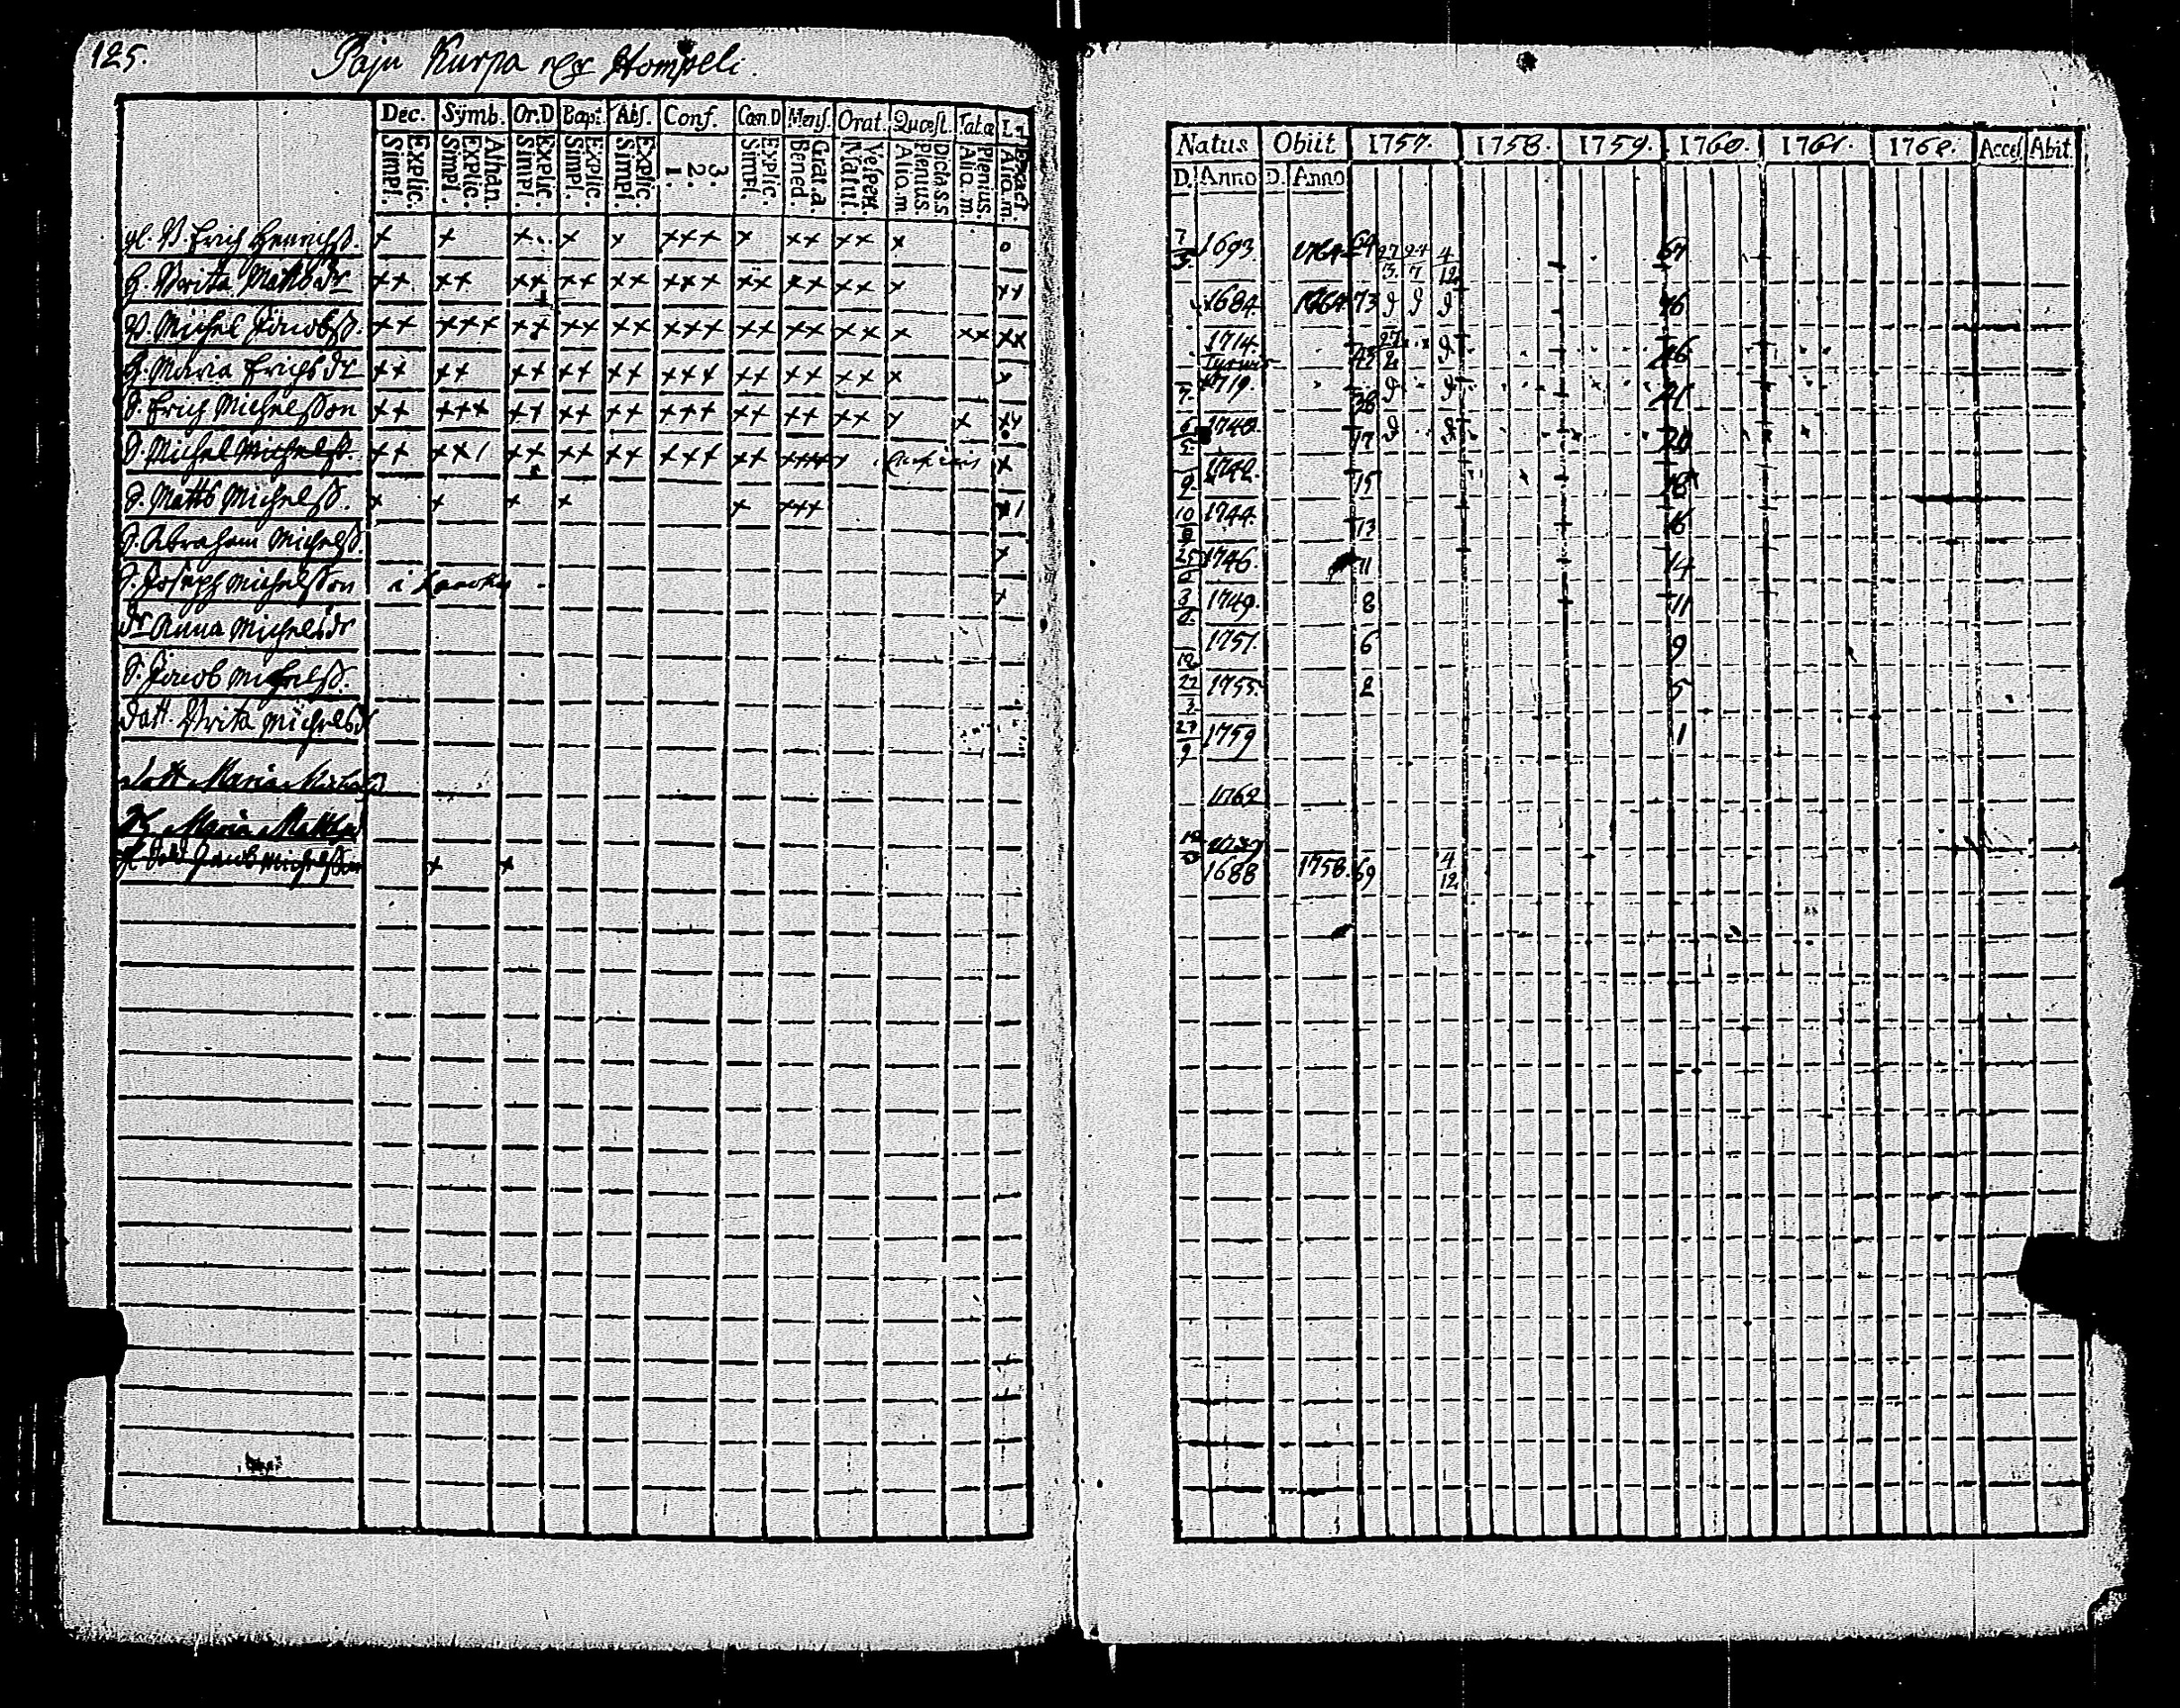 125.
Paju Kurpa Hompeli.
Dec. Symb. Or.D Bapt. Abs. Conf. Cœn.D Mens. Orat. Quæst. Tab.œ
Explic. Simpl. Athan. Explic. Simpl. Explic. Simpl. Explic. Simpl. Explic. Simpl. 3. 2. 1. Explic. Simpl. Grat.a. Bened. Vespert. Matut. Dicta S.S Plenius. Aliq.m. Plenius. Aliq.m. Aliq.m.
gl. B. Erich Henrichss. x x x x x xxx x xx xx x o
H. Brita Mattsdr xx xx xx xx xx xxx xx xx xx x xx
B. Michel Jacobss. xx xxx xx xx xx xxx xx xx xx x xx xx
H. Maria Erichsdr xx xx xx xx xx xxx xx xx xx x x
S. Erich Michelsson xx xxx xx xx xx xxx xx xx xx x x xx
S. Michel Michelss. xx xx xx xx xxx xx x
S. Matts Michelss. x x x x x xxx
S. Abraham Michelss. x
S. Joseph Michelsson i x
dr Anna Michelsdr
S. Jacob Michelss.
datt. Brita Michelsd
datt. Maria
Maria Matts
Jacob Michelsson x x
Natus Obiit 1757. 1758. 1759. 1760. 1761. 1762. Acces. Abiit.
D. Anno D. Anno
7/3 1693 1764 64 27/3 24/7 4/12 67
1684. 1764 73 76
1714. 43 27/2 46
7. 1719. 38 41
6/5 1740. 17 20
9 1742. 15 18
10/8 1744. 13 16
25 1746. 11 14
3 1749. 8 11
12 1751. 6 9
22/3 1755. 2 5
27/9 1759 1
1762
1688 1758. 69 4/12